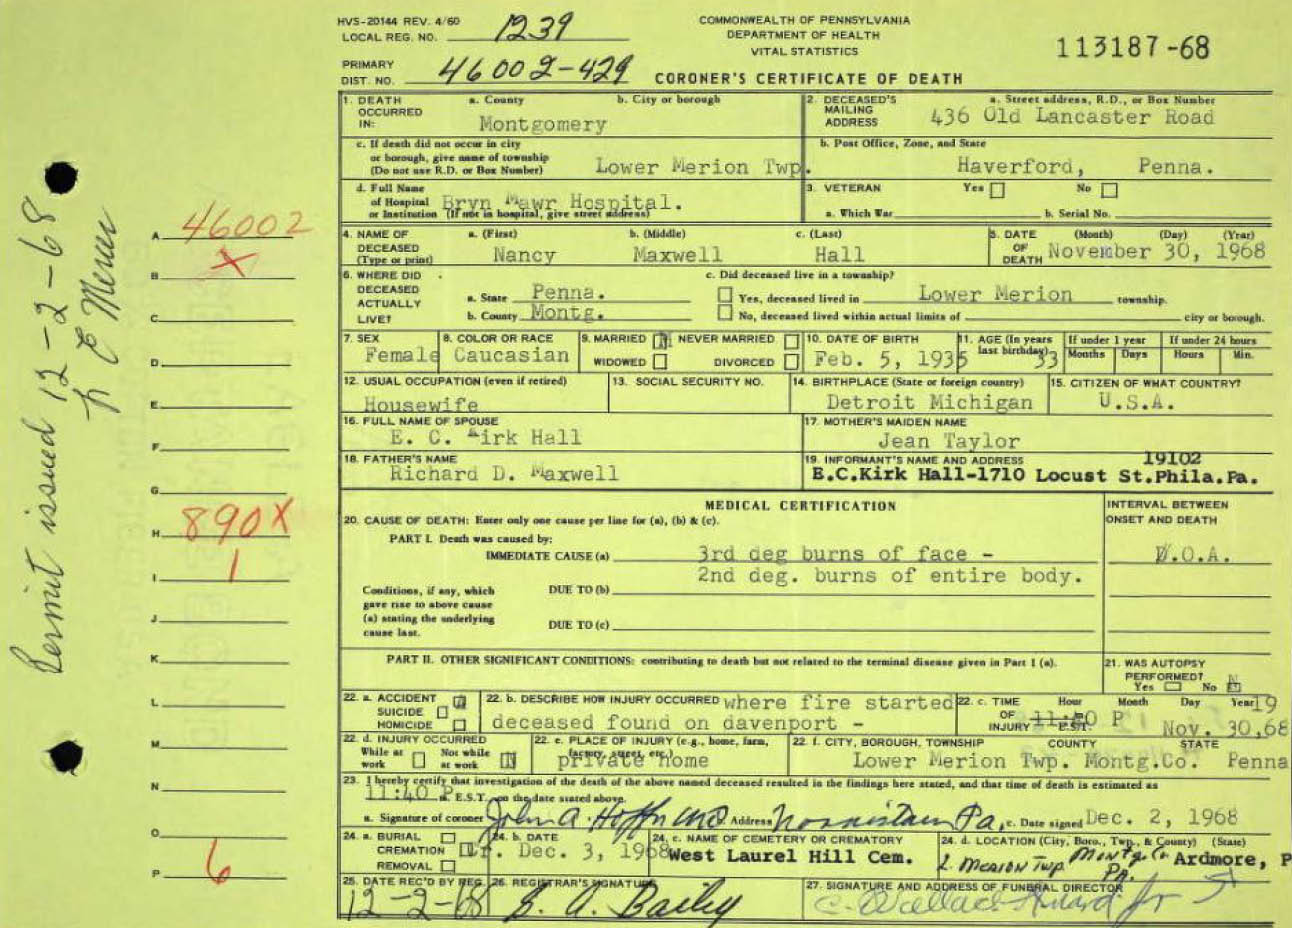 HVS-20144 REV. 4/60
LOCAL REG. NO. 1239
COMMONWEALTH OF PENNSYLVANIA
DEPARTMENT OF HEALTH
VITAL STATISTICS
113187-68
PRIMARY
DIST. NO. 46002-429
CORONER'S CERTIFICATE OF DEATH
1. DEATH OCCURRED IN: a. County Montgomery b. City or borough
2. DECEASED'S MAILING ADDRESS a. Street address, R.D., or Box Number 436 Old Lancaster Road
c. If death did not occur in city or borough, give name of township (Do not use R.D. or Box Number) Lower Merion Twp.
b. Post Office, Zone, and State Haverford, Penna.
d. Full Name of Hospital or Institution (If not in hospital, give street address) Bryn Mawr Hospital.
3. VETERAN Yes No
a. Which War b. Serial No.
4. NAME OF DECEASED (Type or print) a. (First) Nancy b. (Middle) Maxwell c. (Last) Hall
5. DATE OF DEATH (Month) (Day) (Year) November 30, 1968
6. WHERE DID DECEASED ACTUALLY LIVE? a. State Penna.
b. County Montg.
c. Did deceased live in a township?
Yes, deceased lived in Lower Merion township.
No, deceased lived within actual limits of city or borough.
7. SEX Female
8. COLOR OR RACE Caucasian
9. MARRIED NEVER MARRIED
WIDOWED DIVORCED
10. DATE OF BIRTH Feb. 5, 1935
11. AGE (In years last birthday) 33
If under 1 year Months Days
If under 24 hours Hours Min.
12. USUAL OCCUPATION (even if retired) Housewife
13. SOCIAL SECURITY NO.
14. BIRTHPLACE (State or foreign country) Detroit Michigan
15. CITIZEN OF WHAT COUNTRY? U.S.A.
16. FULL NAME OF SPOUSE E. C. Kirk Hall
17. MOTHER'S MAIDEN NAME Jean Taylor
18. FATHER'S NAME Richard D. Maxwell
19. INFORMANT'S NAME AND ADDRESS 19102
E.C.Kirk Hall-1710 Locust St.Phila.Pa.
MEDICAL CERTIFICATION
INTERVAL BETWEEN ONSET AND DEATH
20. CAUSE OF DEATH: Enter only one cause per line for (a), (b) & (c).
PART I. Death was caused by:
IMMEDIATE CAUSE (a) 3rd deg burns of face -
2nd deg. burns of entire body.
D.O.A.
Conditions, if any, which gave rise to above cause (a) stating the underlying cause last.
DUE TO (b)
DUE TO (c)
PART II. OTHER SIGNIFICANT CONDITIONS: contributing to death but not related to the terminal disease given in Part I (a).
21. WAS AUTOPSY PERFORMED?
Yes No
22. a. ACCIDENT
SUICIDE
HOMICIDE
22. b. DESCRIBE HOW INJURY OCCURRED where fire started
deceased found on davenport -
22. c. TIME OF INJURY Hour Month Day Year 19
11:40 P E.S.T. Nov. 30,68
22. d. INJURY OCCURRED
While at work Not while at work
22. e. PLACE OF INJURY (e.g., home, farm, factory, street, etc.) private home
22. f. CITY, BOROUGH, TOWNSHIP COUNTY STATE
Lower Merion Twp. Montg.Co. Penna
23. I hereby certify that investigation of the death of the above named deceased resulted in the findings here stated, and that time of death is estimated as
11:40 P. E.S.T. on the date stated above.
a. Signature of coroner John A. Hoffa MD Address Norristown Pa. c. Date signed Dec. 2, 1968
24. a. BURIAL
CREMATION
REMOVAL
24. b. DATE Dec. 3, 1968
24. c. NAME OF CEMETERY OR CREMATORY
West Laurel Hill Cem.
24. d. LOCATION (City, Boro., Twp., & County) (State)
L. MERION Twp Montg. Co PA. Ardmore, P
25. DATE REC'D BY REG. 12-2-68
26. REGISTRAR'S SIGNATURE S. A. Bailey
27. SIGNATURE AND ADDRESS OF FUNERAL DIRECTOR
C. Wallace Jr
Permit issued 12-2-68
A 46002
B X
C
D
E
F
G
H 890X
I 1
J
K
L
M
N
O
P 6